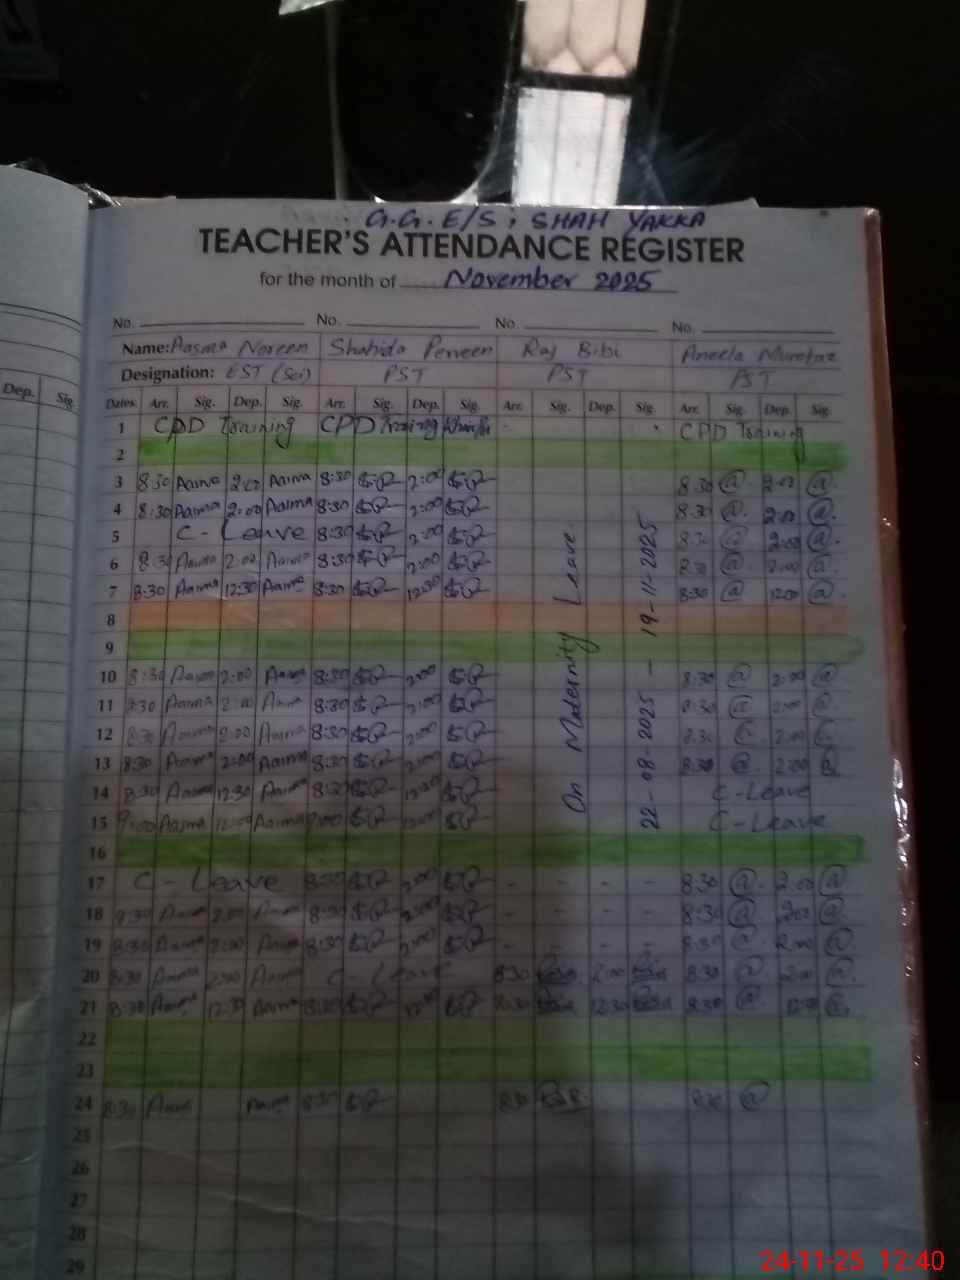 G.G.E/S; SHAH YAKKA
TEACHER'S ATTENDANCE REGISTER
for the month of November 2025
No. No. No. No.
Name: Aasma Noreen Shahida Perveen Raj Bibi Aneela Mumtaz
Designation: EST (Sci) PST PST PST
Dep. Sig.
Dates Arr. Sig. Dep. Sig. Arr. Sig. Dep. Sig. Arr. Sig. Dep. Sig. Arr. Sig. Dep. Sig.
1 CPD Training CPD Training CPD Training
2
3 8:30 Aasma 2:00 Aasma 8:30 2:00 8:30 @ 2:00 @
4 8:30 Aasma 2:00 Aasma 8:30 2:00 8:30 @ 2:00 @
5 C-Leave 8:30 2:00 8:30 @ 2:00 @
6 8:30 Aasma 2:00 Aasma 8:30 2:00 8:30 @ 2:00 @
7 8:30 Aasma 12:30 Aasma 8:30 12:30 8:30 @ @
8
9
On Maternity Leave
22-08-2025 — 19-11-2025
10 8:30 Aasma 2:00 Aasma 8:30 2:00 8:30 @ 2:00 @
11 8:30 Aasma 2:00 Aasma 8:30 2:00 8:30 @ 2:00 @
12 8:30 Aasma 2:00 Aasma 8:30 2:00 8:30 2:00
13 8:30 Aasma 2:00 Aasma 8:30 2:00 8:30 @ 2:00 @
14 8:30 Aasma 12:30 Aasma 8:30 12:30 C-Leave
15 9:00 Aasma 12:00 Aasma 9:00 12:00 C-Leave
16
17 C-Leave 8:30 2:00 - - - - 8:30 @ 2:00 @
18 8:30 Aasma 2:00 Aasma 8:30 2:00 - - - - 8:30 @ 2:00 @
19 8:30 Aasma 2:00 Aasma 8:30 2:00 - - - - 8:30 @ 2:00 @
20 8:30 Aasma 2:00 Aasma C-Leave 8:30 2:00 8:30 @ 2:00 @
21 8:30 Aasma 12:30 Aasma 8:30 12:30 8:30 12:30 8:30 @ 12:30 @
22
23
24 8:30 Aasma Aasma 8:30 8:30 8:30 @
25
26
27
28
29
24-11-25 12:40